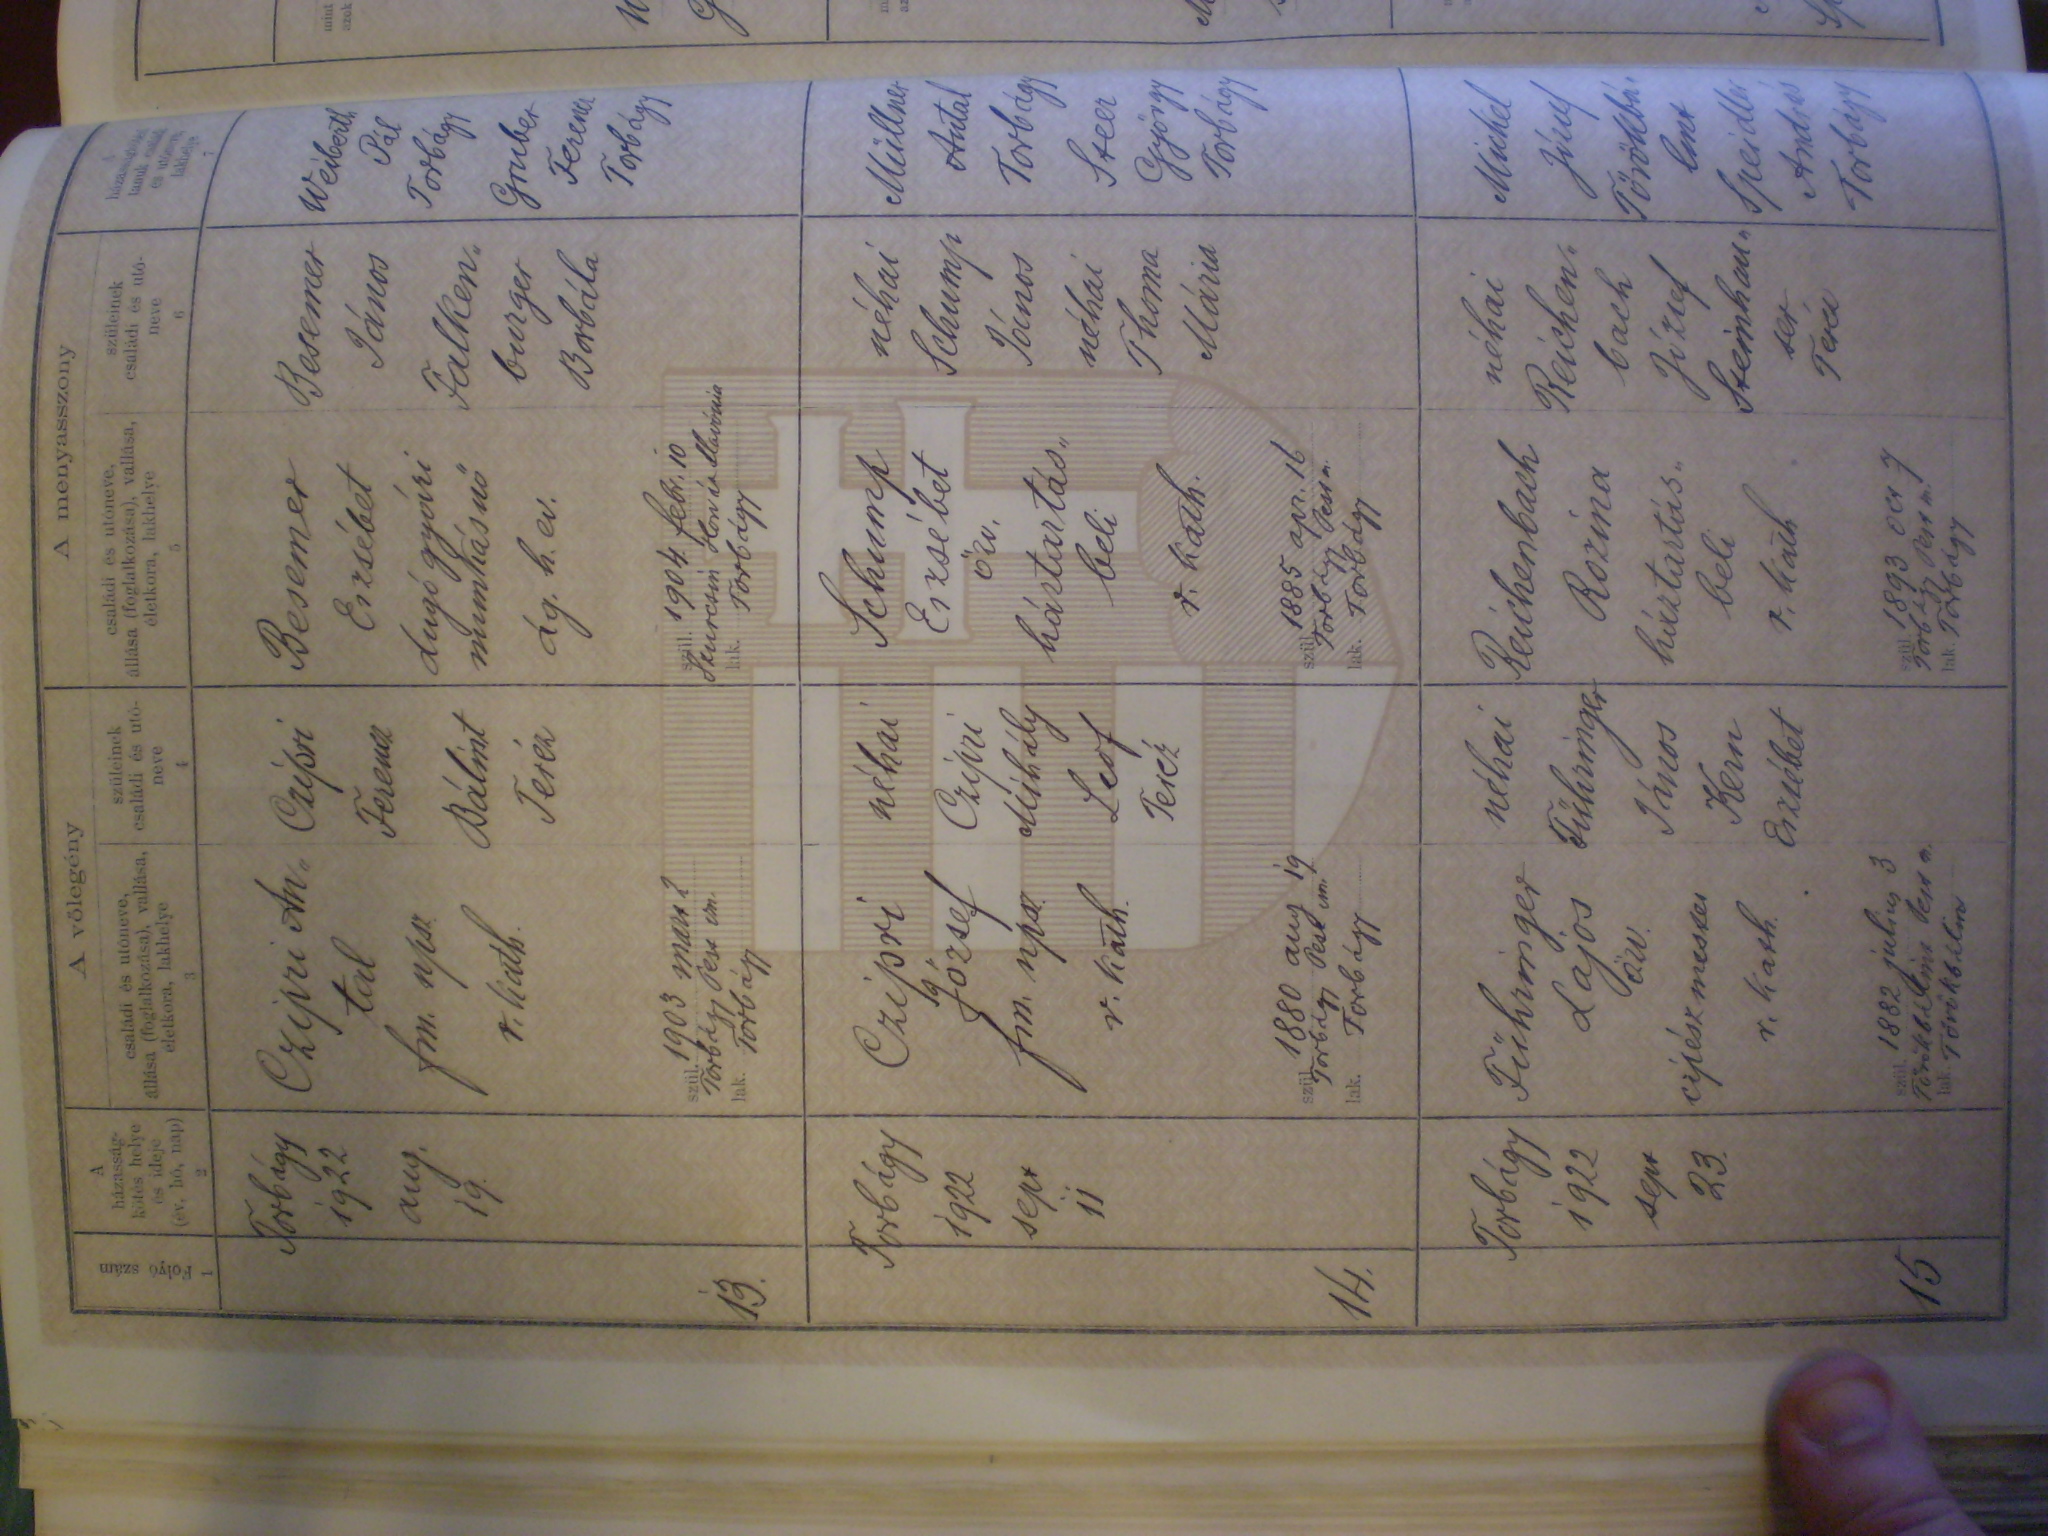 A völegény
A menyasszony
Folyó szám
1
A
házasság-
kötés helye
és ideje
(év, hó, nap)
2
családi és utóneve,
állása (foglalkozása), vallása,
életkora, lakhelye
3
szüleinek
családi és utó-
neve
4
családi és utóneve,
állása (foglalkozása), vallása,
életkora, lakhelye
5
szüleinek
családi és utó-
neve
6
A
házasságkötési
tanuk családi
és utóneve,
lakhelye
7
13.
Torbágy
1922
aug.
19.
Czipri An„
tal
fm. npsz.
r. kath.
szül. 1903 marz 2
Torbágy Pest vm.
lak. Torbágy
Czipri
Ferencz
Bálint
Teréz
Besemer
Erzsébet
dugógyári
munkásnő
ág. h. ev.
szül. 1904 febr. 10
Szurcsin Horvát Slavónia
lak. Torbágy
Besemer
János
Falken„
burger
Borbála
Weiberth
Pál
Torbágy
Gruber
Ferencz
Torbágy
14.
Torbágy
1922
sept
11
Czipri
ig
József
fm. npsz.
r. kath.
szül. 1880 aug 19
Torbágy Pest vm.
lak. Torbágy
néhai
Czipri
Mihály
Lesf
Teréz
Schump
Erzsébet
özv.
háztartás„
beli
r. kath.
szül. 1885 apr. 16
Torbágy Pest m.
lak. Torbágy
néhai
Schump
János
néhai
Thoma
Mária
Müllner
Antal
Torbágy
Steer
György
Torbágy
15
Torbágy
1922
sept
23.
Führinger
Lajos
özv.
cipészmester
r. kath.
szül. 1882 julius 3
Törökbálint Pest m.
lak. Törökbálint
néhai
Führinger
János
Kern
Erzsébet
Reichenbach
Rozina
háztartás„
beli
r. kath
szül. 1893 oct 7
Torbágy Pest m.
lak. Torbágy
néhai
Reichen„
bach
József
Steinhau„
ser
Teréz
Michel
József
Törökbá„
lint
Speidl
András
Torbágy